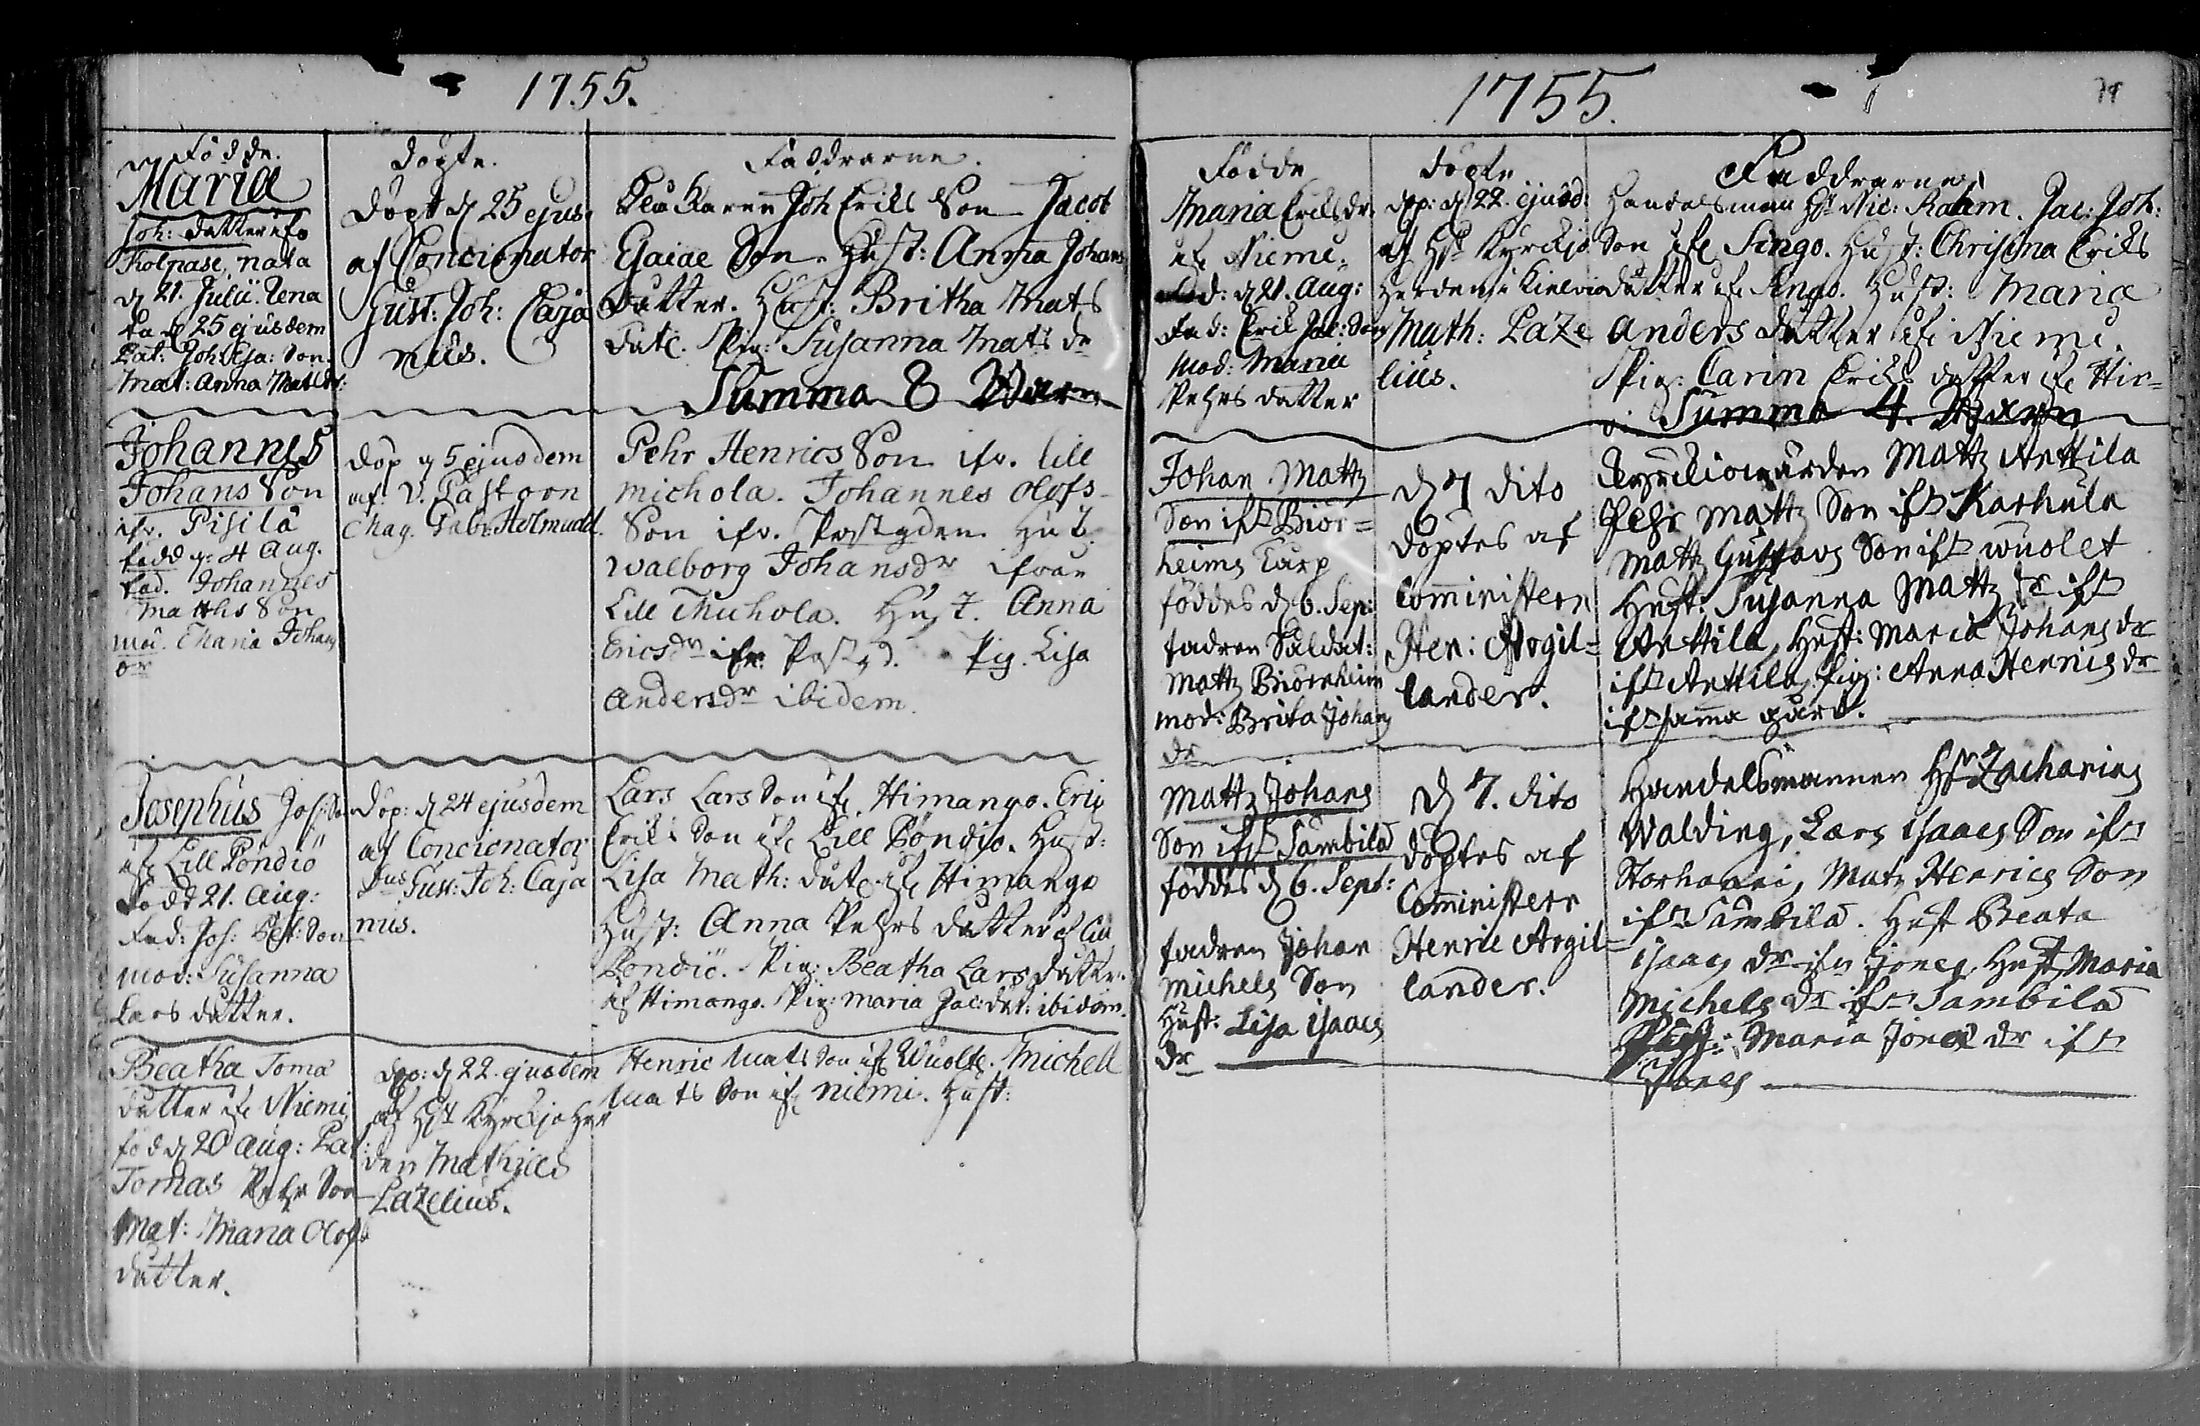 1755.
Födde.
Döpte.
Faddrarne.
Maria
Joh: datter ifr
Kolpase, nata
d 21. Julii. Rena
ta d 25 ejusdem
Pat: Joh: Esa: Son.
Mat: Anna Mats dr:
Döpt d 25 ejus.
af Concionator
Gust: Joh: Caja
nus.
Klåckaren Joh Eriks Son Jacob
Esaiae Son. Hust: Anna Johans
datter. Hust: Britha Mats
datt. Pig: Susanna Mats dr
Summa 8 Barn
Johannes
Johans Son
ifr. Pisilä
född d: 4 Aug.
fad. Johannes
Matths Son
mod. Maria Johans
dr
döp d 5 ejusdem
af V. Pastorn
Mag. Gabr. Holmudd.
Pehr Henrics Son ifr. lill
michola. Johannes Olofs-
Son ifr. Postgden Hust.
Walborg Johansdr ifrån
Lill Michola. Hust. Anna
Ericsdr ifr. Postgd. Pig. Lisa
Andersdr ibidem.
Josephus Jos: Son
ifr Lill Pöndiö
Född 21. Aug:
Fad: Jos: Son
mod: Susanna
Lars datter.
Döp: d 24 ejusdem
af Concionator
Dns Gust: Joh: Caja
nus.
Lars Lars Son ifr Himango. Eric
Eriks Son ifr Lill Pöndiö. Hust:
Lisa Math: datt. ifr Himango
Hust: Anna Pehrs datter af lill
Pöndiö. Pig: Beatha Lars datter
af Himango. Pig: Maria Jac: dat: ibidem.
Beatha Toma
datter ifr Niemi
föd d 20 Aug: Pat:
Tomas Pehr Son
Mat: Maria Olofs
datter.
döp: d 22. ejusdem
af Hr Kyrckjo her
den Mathias
Lazelius.
Henric Mats Son ifr Wuolle. Michell
Mats Son ifr niemi. Hust:
1755.
Födde
döpte
Faddrarne
Maria Eriks dr.
ifr Niemi.
föd: d 21. Aug:
Fad: Erik Jac: Son
Mod: Maria
Pehrs datter
döp: d 22. ejusd:
af Hr Kyrckjo
Herden i Kielviä
Math: Laze
lius.
Handelsman Hr Nic: Kahm. Jac: Joh:
Son ifr Singo. Hust: Christina Eriks
datter ifr Singo. Hust: Maria
Anders datter ifr Niemi.
Pig: Carin Eriks datter ifr
Summa 4. Barn
Johan Mattz
Son ifr Biör=
heims Tarp
föddes d 6. Sep:
fadren Saldat:
Mattz Biörnheim
mod: Brita Johans
dr
d 7 dito
döptes af
Comministern
Hen: Argil=
lander.
Kyrckiowärden Mattz Anttila
Pehr Mattz Son ifr Karhula
Mattz Gustavs Son ifr wuolet
Hust: Susanna Mattz dr ifr
Anttila, Hust: Maria Johans dr
ifr Anttila, Pig: Anna Henrics dr
ifr samma gård.
Mattz Johans
Son ifr Sämbilä
föddes d 6. Sept:
fadren Johan
Michels Son
Hust: Lisa Isaacs
dr
d 7. dito
döptes af
Comministern
Henric Argil=
lander.
Handelsmannen Hr Zacharias
Walding, Lars Isaacs Son ifr
Mats Henrics Son
ifr Sämbilä. Hust Beata
Isaacs dr ifr Jones, Hust Maria
Michels dr ifr Sämbilä
Pig: Maria Jones dr ifr
Jones